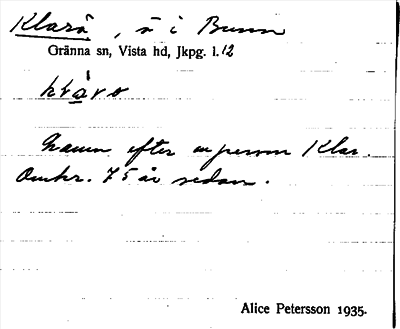 Klarö, ö i Bunn
Gränna sn, Vista hd, Jkpg. l. 12
Namn efter en person Klar.
Omkr. 75 år sedan.
Alice Petersson 1935.